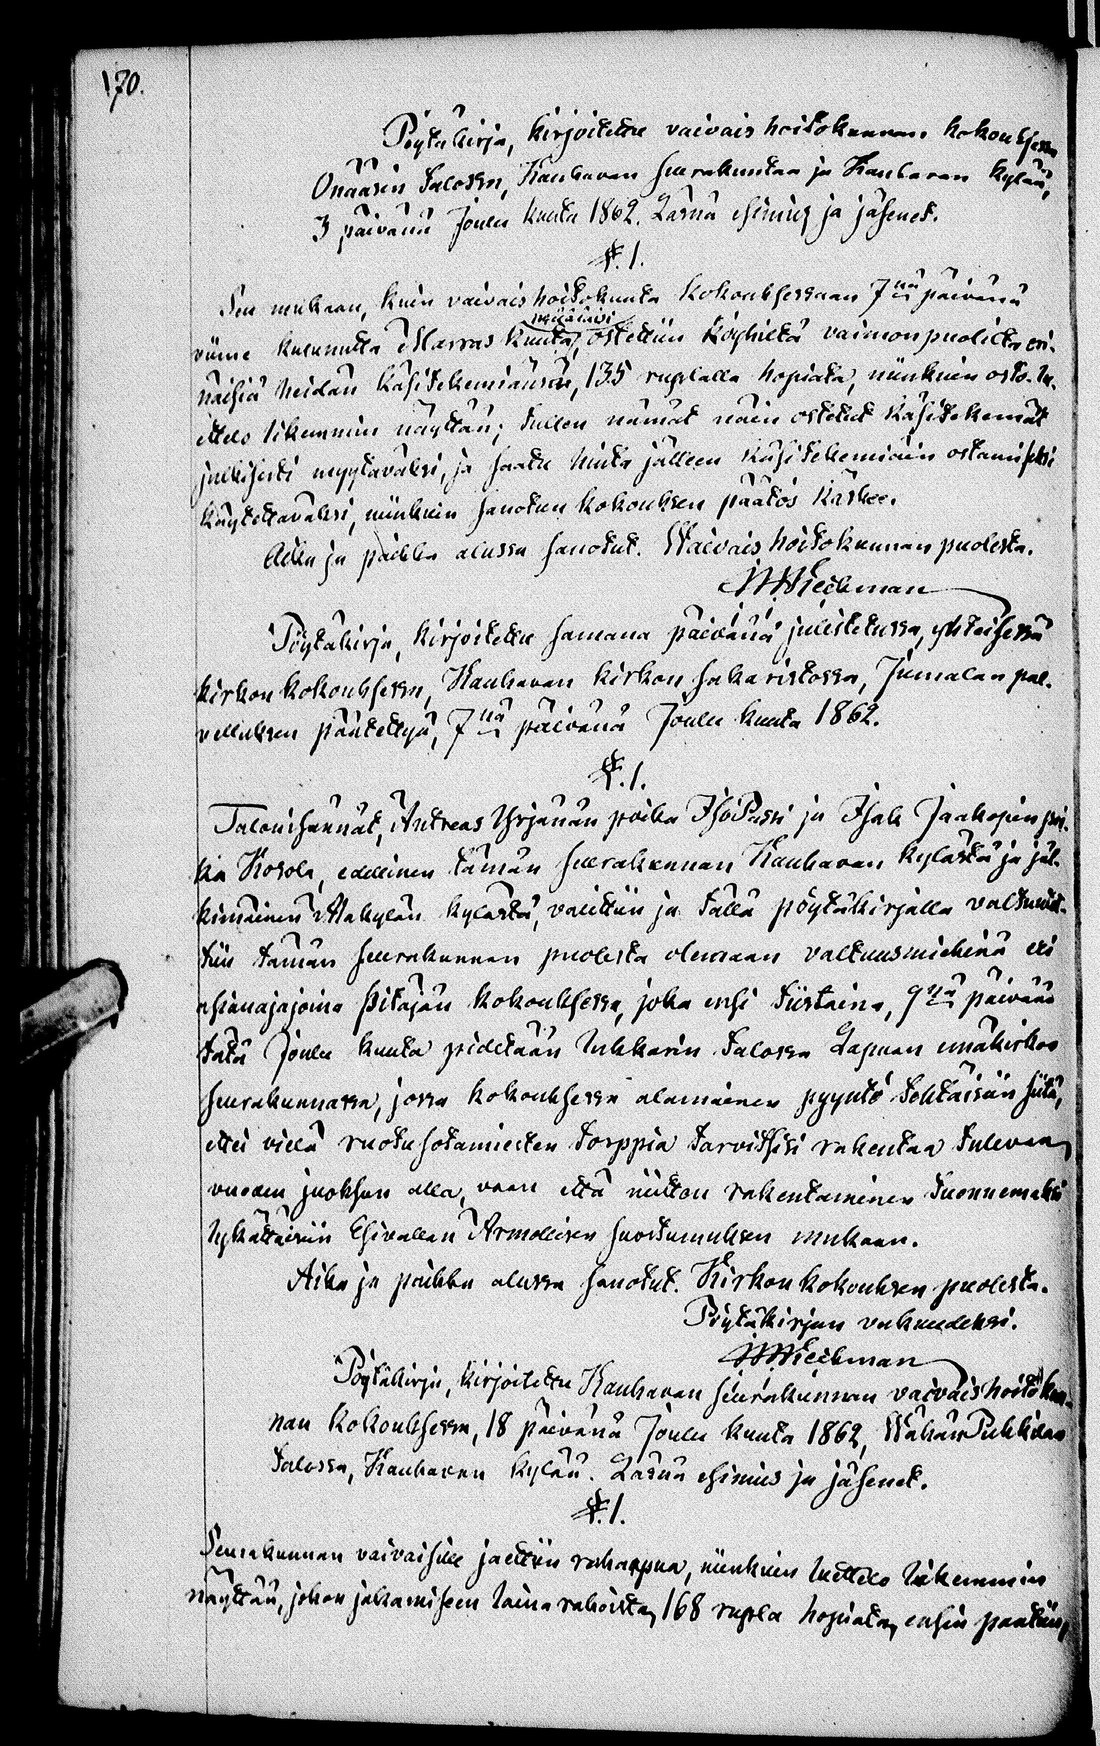 170.
Pöytäkirja, kirjoitettu vaivaishoitokunnan kokouksessa
Onaasin talossa, Kauhavan seurakuntaa ja Kauhavan kylää,
3 päivänä Joulu kuuta 1862. Läsnä esimies ja jäsenet.
§. 1.
Sen mukaan, kuin vaivaishoitokunta kokouksessaan 7nä päivänä
viime kulunutta Marras kuuta, ostettiin köyhiltä vaimonpuolilta eri-
näisiä heidän käsitekemiänsä, 135 ruplalla hopiata, niinkuin osto-lu-
ettelo likemmin näyttää; tullen nämät näin ostetut käsitekemät
julkisesti myytäväksi, ja saatu hinta jälleen käsitekemiäin ostamiseksi
käytettäväksi, niinkuin sanotun kokouksen päätös käskee.
Aika ja paikka alussa sanotut. Waivaishoitokunnan puolesta.
Wieckman
Pöytäkirja, kirjoitettu samana päivänä julistetussa, yhteisessä
kirkon kokouksessa, Kauhavan kirkon sakaristossa, Jumalan pal-
velluksen päätettyä, 7nä päivänä Joulu kuuta 1862.
§. 1.
Talonisännät, Antreas Yrjänän poika IsoPassi ja Isak Jaakopin poi-
ka Kosola, edellinen tämän seurakunnan Kauhavan kylästä ja jäl-
kimäinen Alakylän kylästä, valittiin ja tällä pöytäkirjalla valtuutet-
tiin tämän seurakunnan puolesta olemaan valtuusmiehinä eli
asianajajoina pitäjän kokouksessa, joka ensi tiistaina, 9nä päivänä
tätä Joulu kuuta pidetään Lukkarin talossa Lapuan emäkirkko
seurakunnassa, jossa kokouksessa alamainen pyyntö tehtäisiin siitä,
ettei vielä ruotusotamiesten torppia tarvitsisi rakentaa tulevan
vuoden juoksun alla, vaan että niitten rakentaminen tuonnemaksi
lykättäisiin Esivallan Armollisen suostumuksen mukaan.
Aika ja paikka alussa sanotut. Kirkon kokouksen puolesta.
Pöytäkirjan vakuudeksi.
Wieckman
Pöytäkirja, kirjoitettu Kauhavan seurakunnan vaivaishoitokun-
nan kokouksessa, 18 päivänä Joulu kuuta 1862, Wähän Pukkilan
talossa, Kauhavan kylää. Läsnä esimies ja jäsenet.
§. 1.
Seurakunnan vaivaisille jaettiin raha-apua, niinkuin luettelo likemmin
näyttää, johon jakamiseen laina rahoista, 168 rupla hopiata, ensin pantiin,